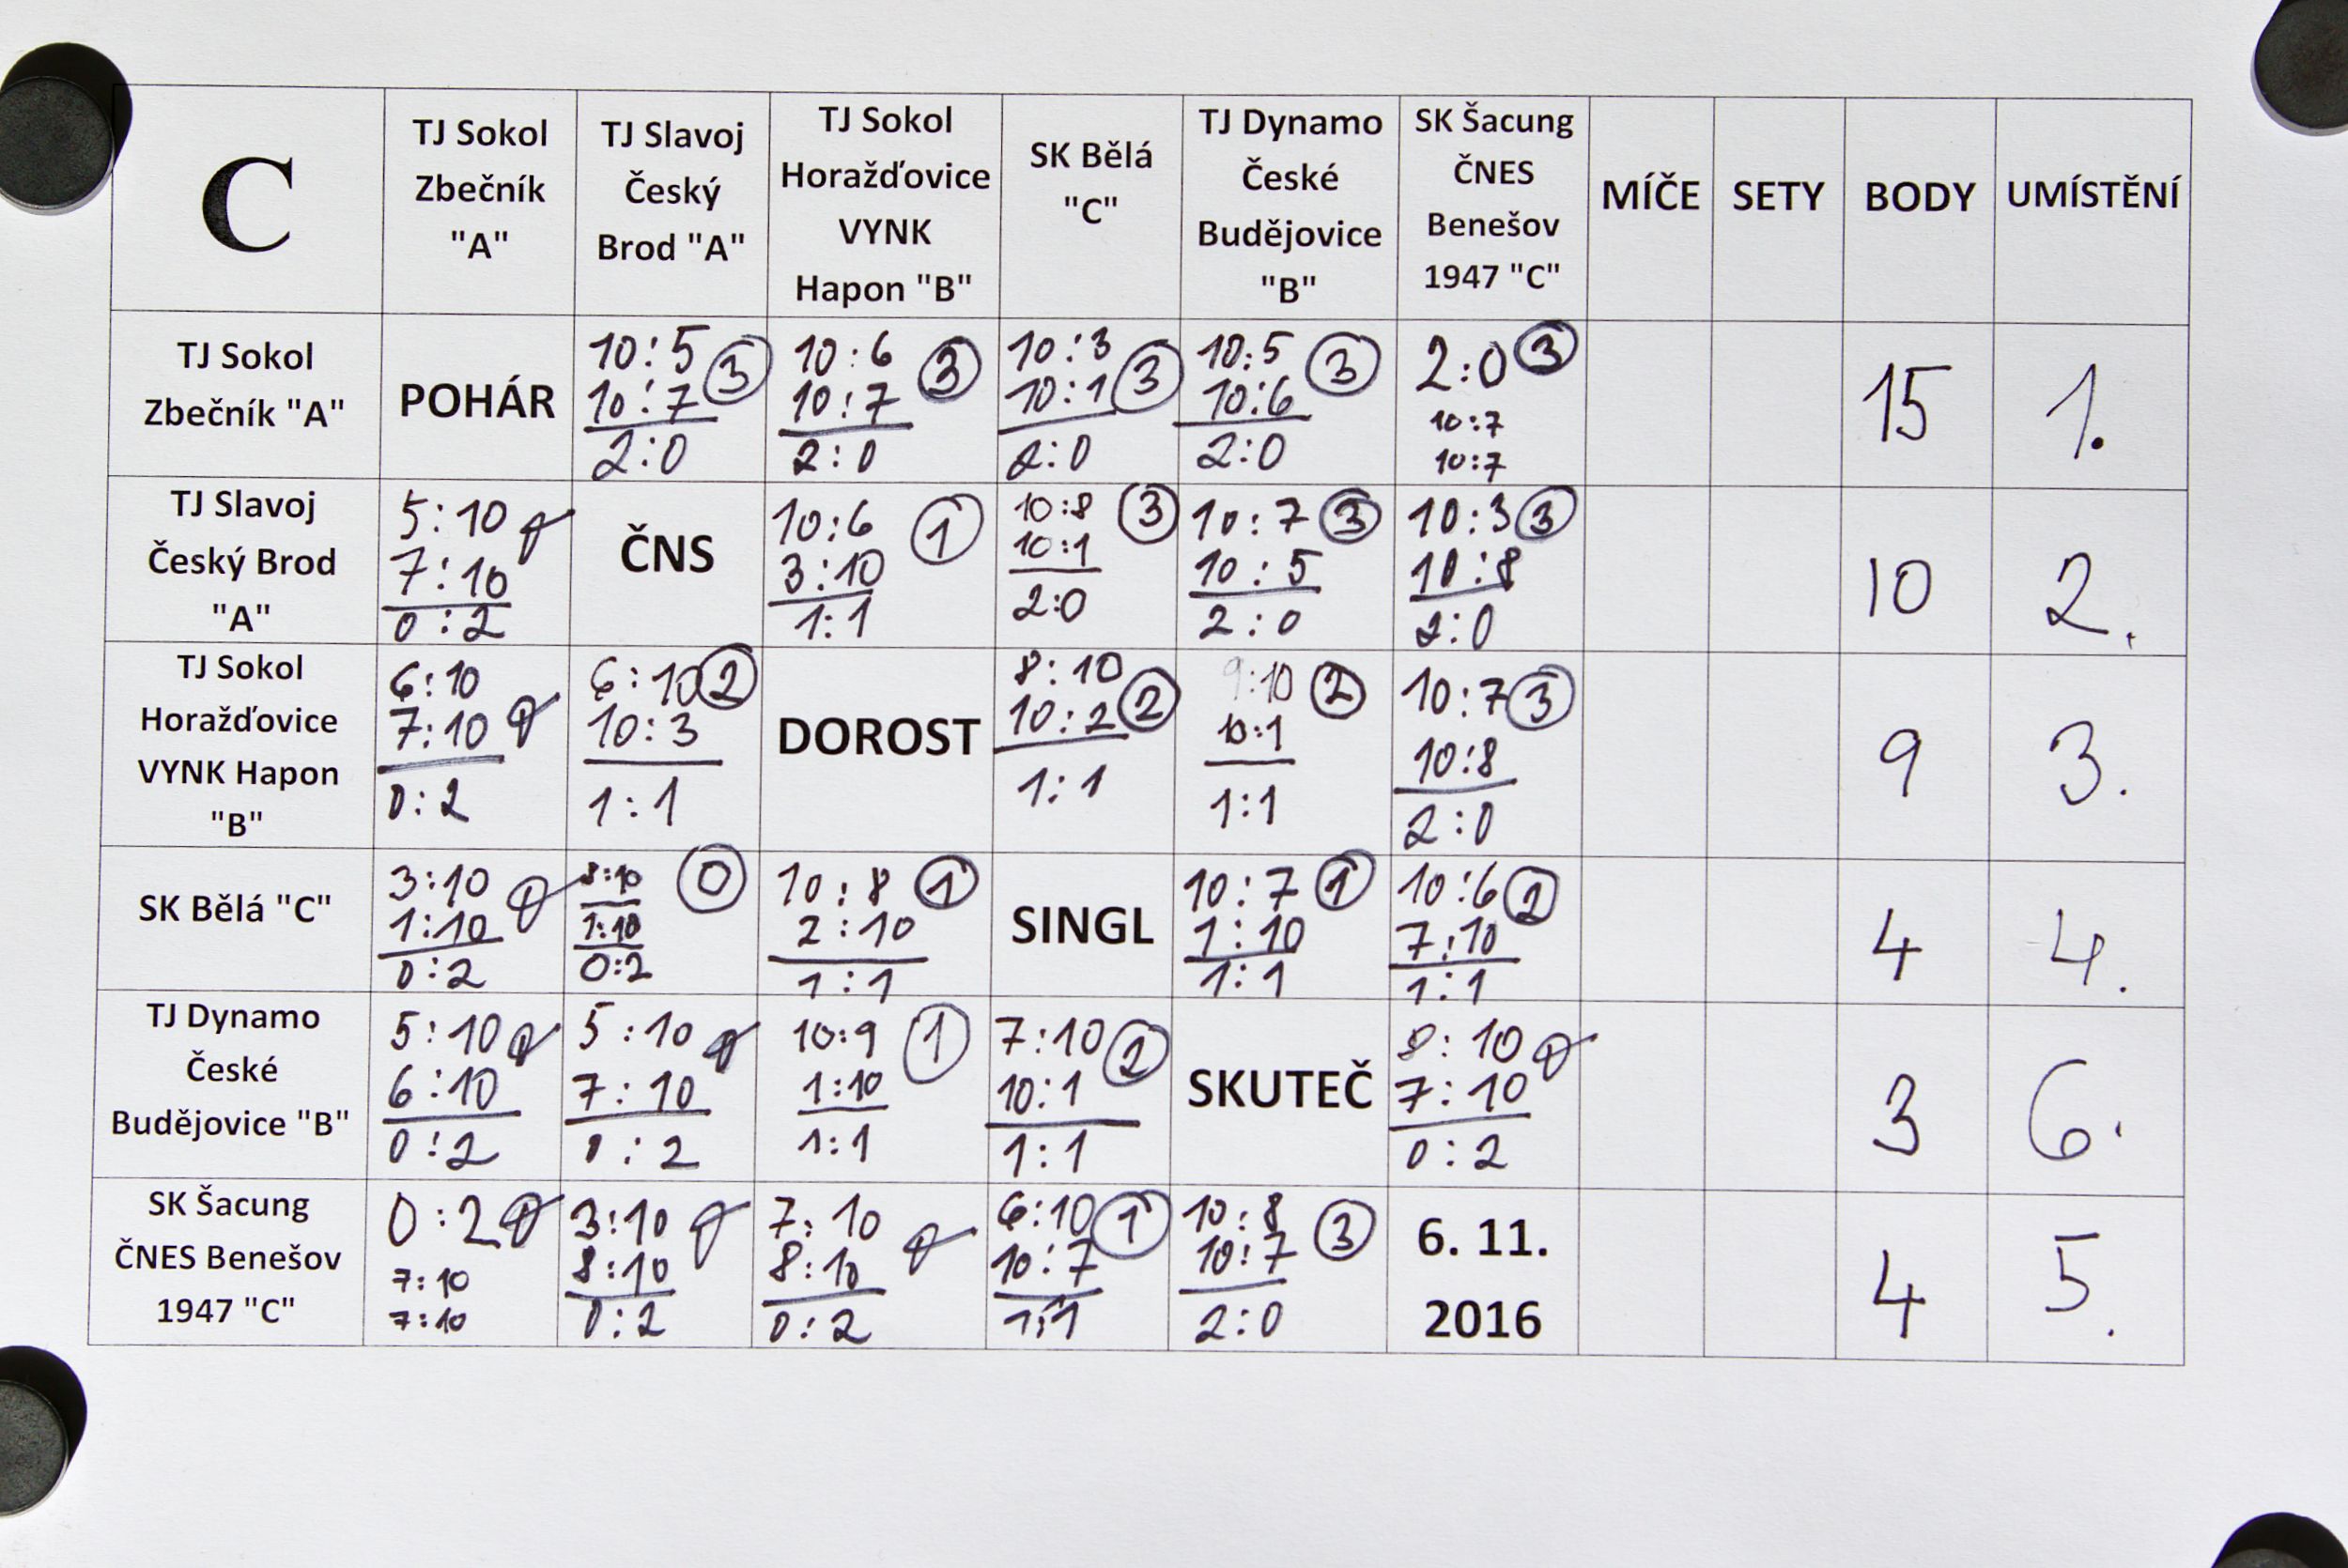 C
TJ Sokol
Zbečník
"A"
TJ Slavoj
Český
Brod "A"
TJ Sokol
Horažďovice
VYNK
Hapon "B"
SK Bělá
"C"
TJ Dynamo
České
Budějovice
"B"
SK Šacung
ČNES
Benešov
1947 "C"
MÍČE
SETY
BODY
UMÍSTĚNÍ
TJ Sokol
Zbečník "A"
POHÁR
10:5 3
10:7
2:0
10:6 3
10:7
2:0
10:3
10:1 3
2:0
10:5 3
10:6
2:0
2:0 3
10:7
10:7
15
1.
TJ Slavoj
Český Brod
"A"
5:10 0
7:10
0:2
ČNS
10:6 1
3:10
1:1
10:8 3
10:1
2:0
10:7 3
10:5
2:0
10:3 3
10:8
2:0
10
2.
TJ Sokol
Horažďovice
VYNK Hapon
"B"
6:10
7:10 0
0:2
6:10 2
10:3
1:1
DOROST
8:10
10:2 2
1:1
9:10 2
10:1
1:1
10:7 3
10:8
2:0
9
3.
SK Bělá "C"
3:10 0
1:10
0:2
8:10 0
1:10
0:2
10:8 1
2:10
1:1
SINGL
10:7 1
1:10
1:1
10:6 2
7:10
1:1
4
4.
TJ Dynamo
České
Budějovice "B"
5:10 0
6:10
0:2
5:10 0
7:10
0:2
10:9 1
1:10
1:1
7:10 2
10:1
1:1
SKUTEČ
8:10 0
7:10
0:2
3
6.
SK Šacung
ČNES Benešov
1947 "C"
0:2 0
7:10
7:10
3:10 0
8:10
0:2
7:10 0
8:10
0:2
6:10 1
10:7
1:1
10:8 3
10:7
2:0
6. 11.
2016
4
5.